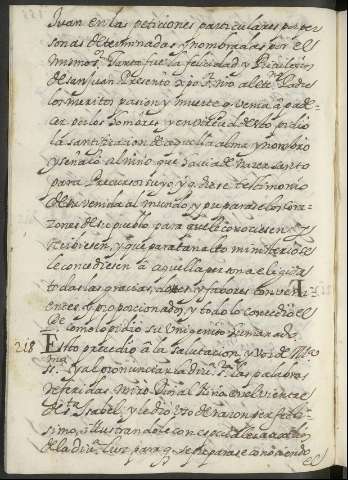 Juan en las peticiones particulares por per
sonas determinadas y nombrales por el
mismo. Tanta fue la felicidad y
de san Juan Presento xpo Nro al eterno Padre
los meritos pasion y muerte q venia à pade
cer por los hombres y en de esto pidio
la santificacion de aquella alma y nombro
y señalo al niño que havia de nacer santo
para Precursor suyo y q diese testimonio
de su venida al mundo y preparase los cora
zones de su pueblo para que le conociesen y
recibiesen, y que para tan alto ministerio se
le concediesen à aquella persona elegida
todas las gracias, dones y favores conveni
entes y proporcionados y todo lo concedio el
Pe. como lo pidio su Unigenito humanado
218 Esto precedio à la salutacion y voz de M.ª
SS. Y al pronunciar la div.ª S.ª las palabras
referidas miro Dios al Niño en el vientre
de S.ta Isabel, y le dio uso de razon perfectis
simo, illustrandole con especiales auxilios
de la div.ª luz para q se preparase conociendo
el